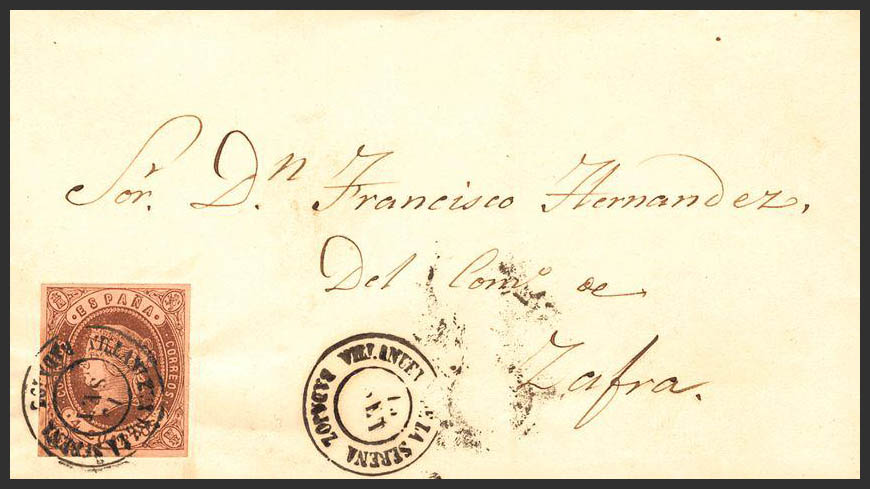 Sor. Dn Francisco Hernandez,
Del Como de
Zafra.
ESPAÑA
CORREOS
VILLANUEVA DE LA SERENA
BADAJOZ
VILLANUEVA DE LA SERENA
SET
BADAJOZ